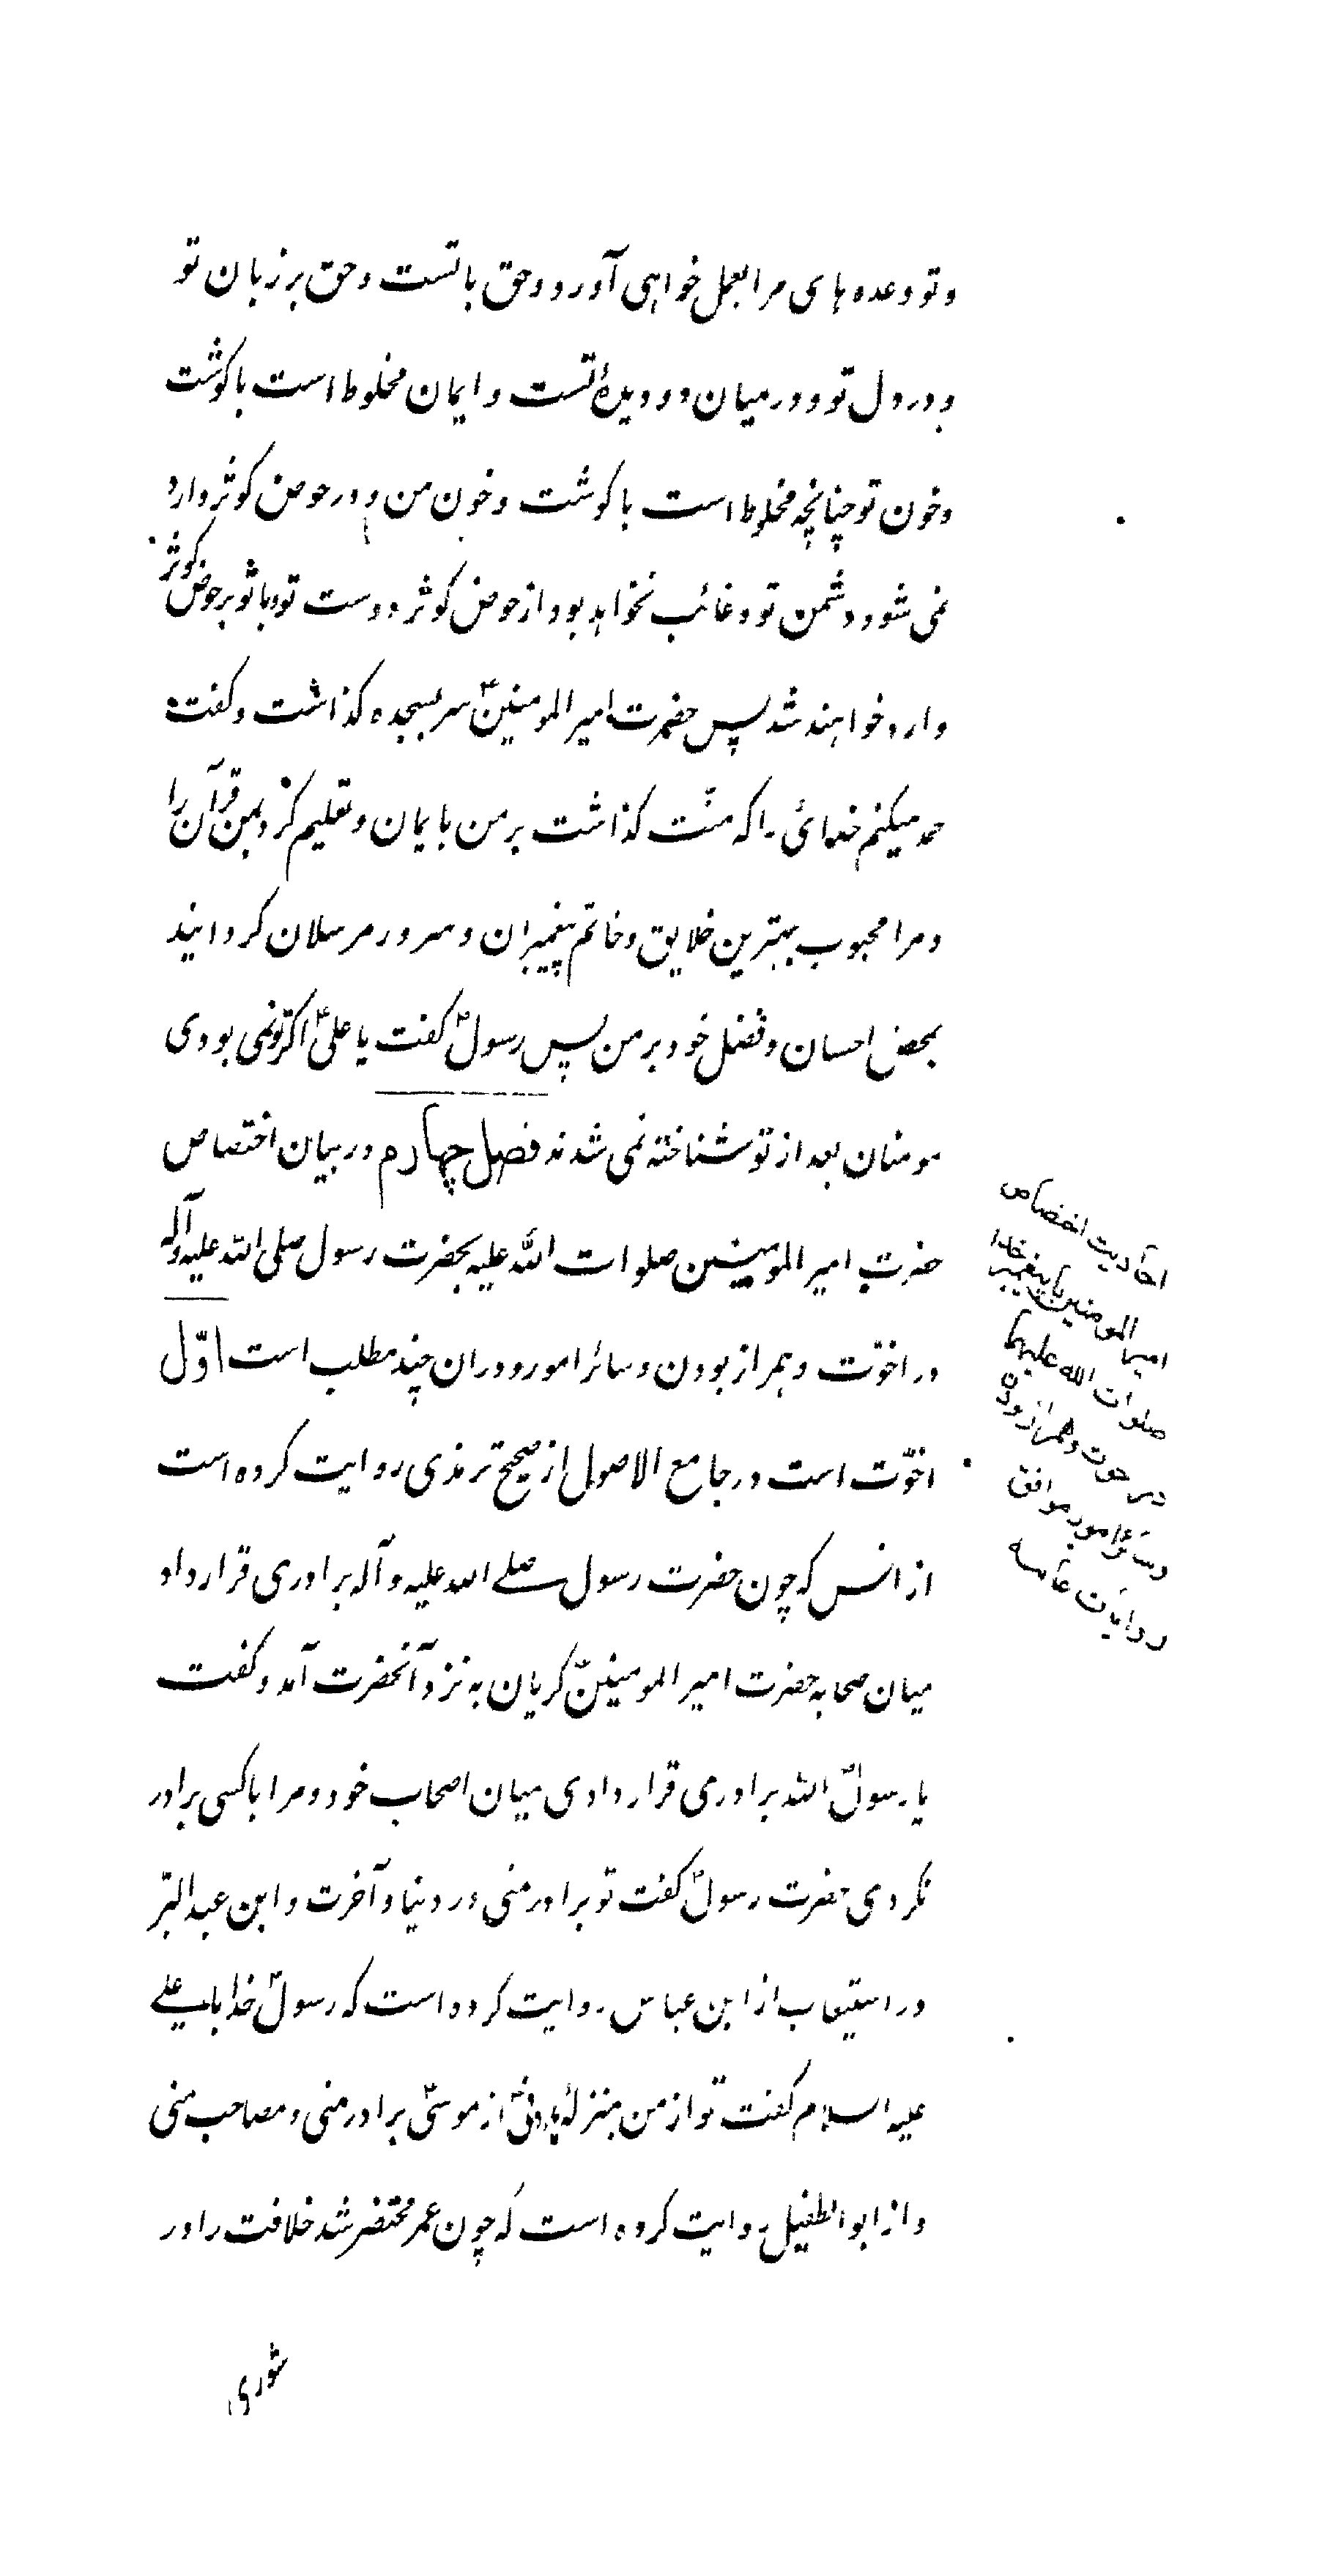 و تو وعده های مرا بعمل خواهی آورد و حق با تست و حق بر زبان تو
و در دل تو و در میان دو دیدهٔ تست و ایمان مخلوط است با گوشت
و خون تو چنانچه مخلوط است با گوشت و خون من و در حوض کوثر وارد
نمی شود دشمن تو و غائب نخواهد بود از حوض کوثر دوست تو و با تو بر حوض کوثر
وارد خواهند شد پس حضرت امیر المومنینؑ سر بسجده گذاشت و گفت
حمد میکنم خدائی را که منّت گذاشت بر من بایمان و تعلیم کرد بمن قرآن را
و مرا محبوب بهترین خلایق و خاتم پیغمبران و سرور مرسلان گردانید
بمحض احسان و فضل خود بر من پس رسولؐ گفت یا علیؑ اگر تو نمی بودی
مومنان بعد از تو شناخته نمی شدند فصل چهارم در بیان اختصاص
حضرت امیر المومنین صلوات اللّه علیه بحضرت رسول صلی اللّه علیه و آله
در اخوّت و همراز بودن و سائر امور و در ان چند مطلب است اوّل
اخوّت است در جامع الاصول از صحیح ترمذی روایت کرده است
از انس که چون حضرت رسول صلے اللہ علیه و آله برادری قرار داد
میان صحابه حضرت امیر المومنینؑ گریان به نزد آنحضرت آمد و گفت
یا رسولؐ اللّه برادری قرار دادی میان اصحاب خود و مرا با کسی برادر
نکردی حضرت رسولؐ گفت تو برادر منی در دنیا و آخرت و ابن عبد البّر
در استیعاب از ابن عباس روایت کرده است که رسولؐ خدا با علے
علیه السلام گفت تو از من بمنزلهٔ هارونؑ از موسیؑ برادر منی و مصاحب منی
و از ابو الطفیل روایت کرده است که چون عمر محتضر شد خلافت را در
شوری
احادیث اختصاص
امیر المومنین با پیغمبر خدا
صلوات الله علیهما
در اخوت و همراز بودن
و سائر امور موافق
روایات عامه